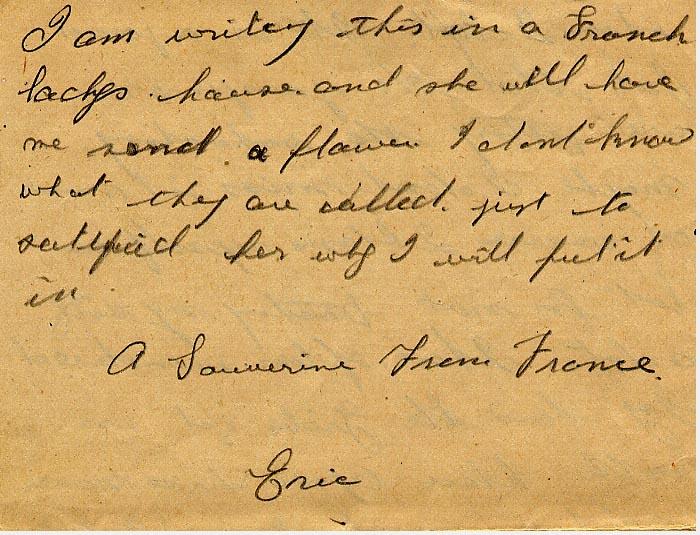 I am writey this in a French
ladys house. and she will have
me send. a flower I dont know
what they are called. just to
satisfied her why I will put it
in
A Souverine From France.
Eric